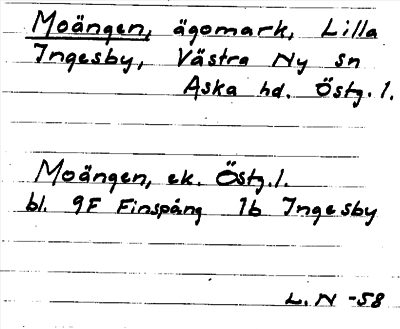 Moängen, ägomark, Lilla
Ingesby, Västra Ny sn
Aska hd. Östg.l.
Moängen, ek. Östg.l.
bl. 9F Finspång 1b Ingesby
L.N -58